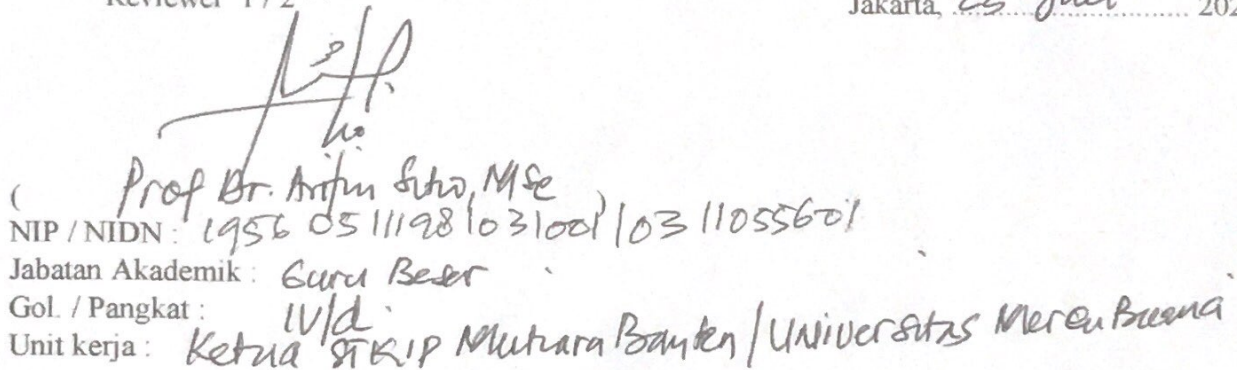 Reviewer 1 / 2
Jakarta, 25 Juli 202
( Prof Dr. Arifin Sitio, MSc )
NIP / NIDN : 19560511 198103 1001 / 0311055601
Jabatan Akademik : Guru Besar
Gol. / Pangkat : IV/d
Unit kerja : Ketua STKIP Mutiara Banten / Universitas Mercu Buana